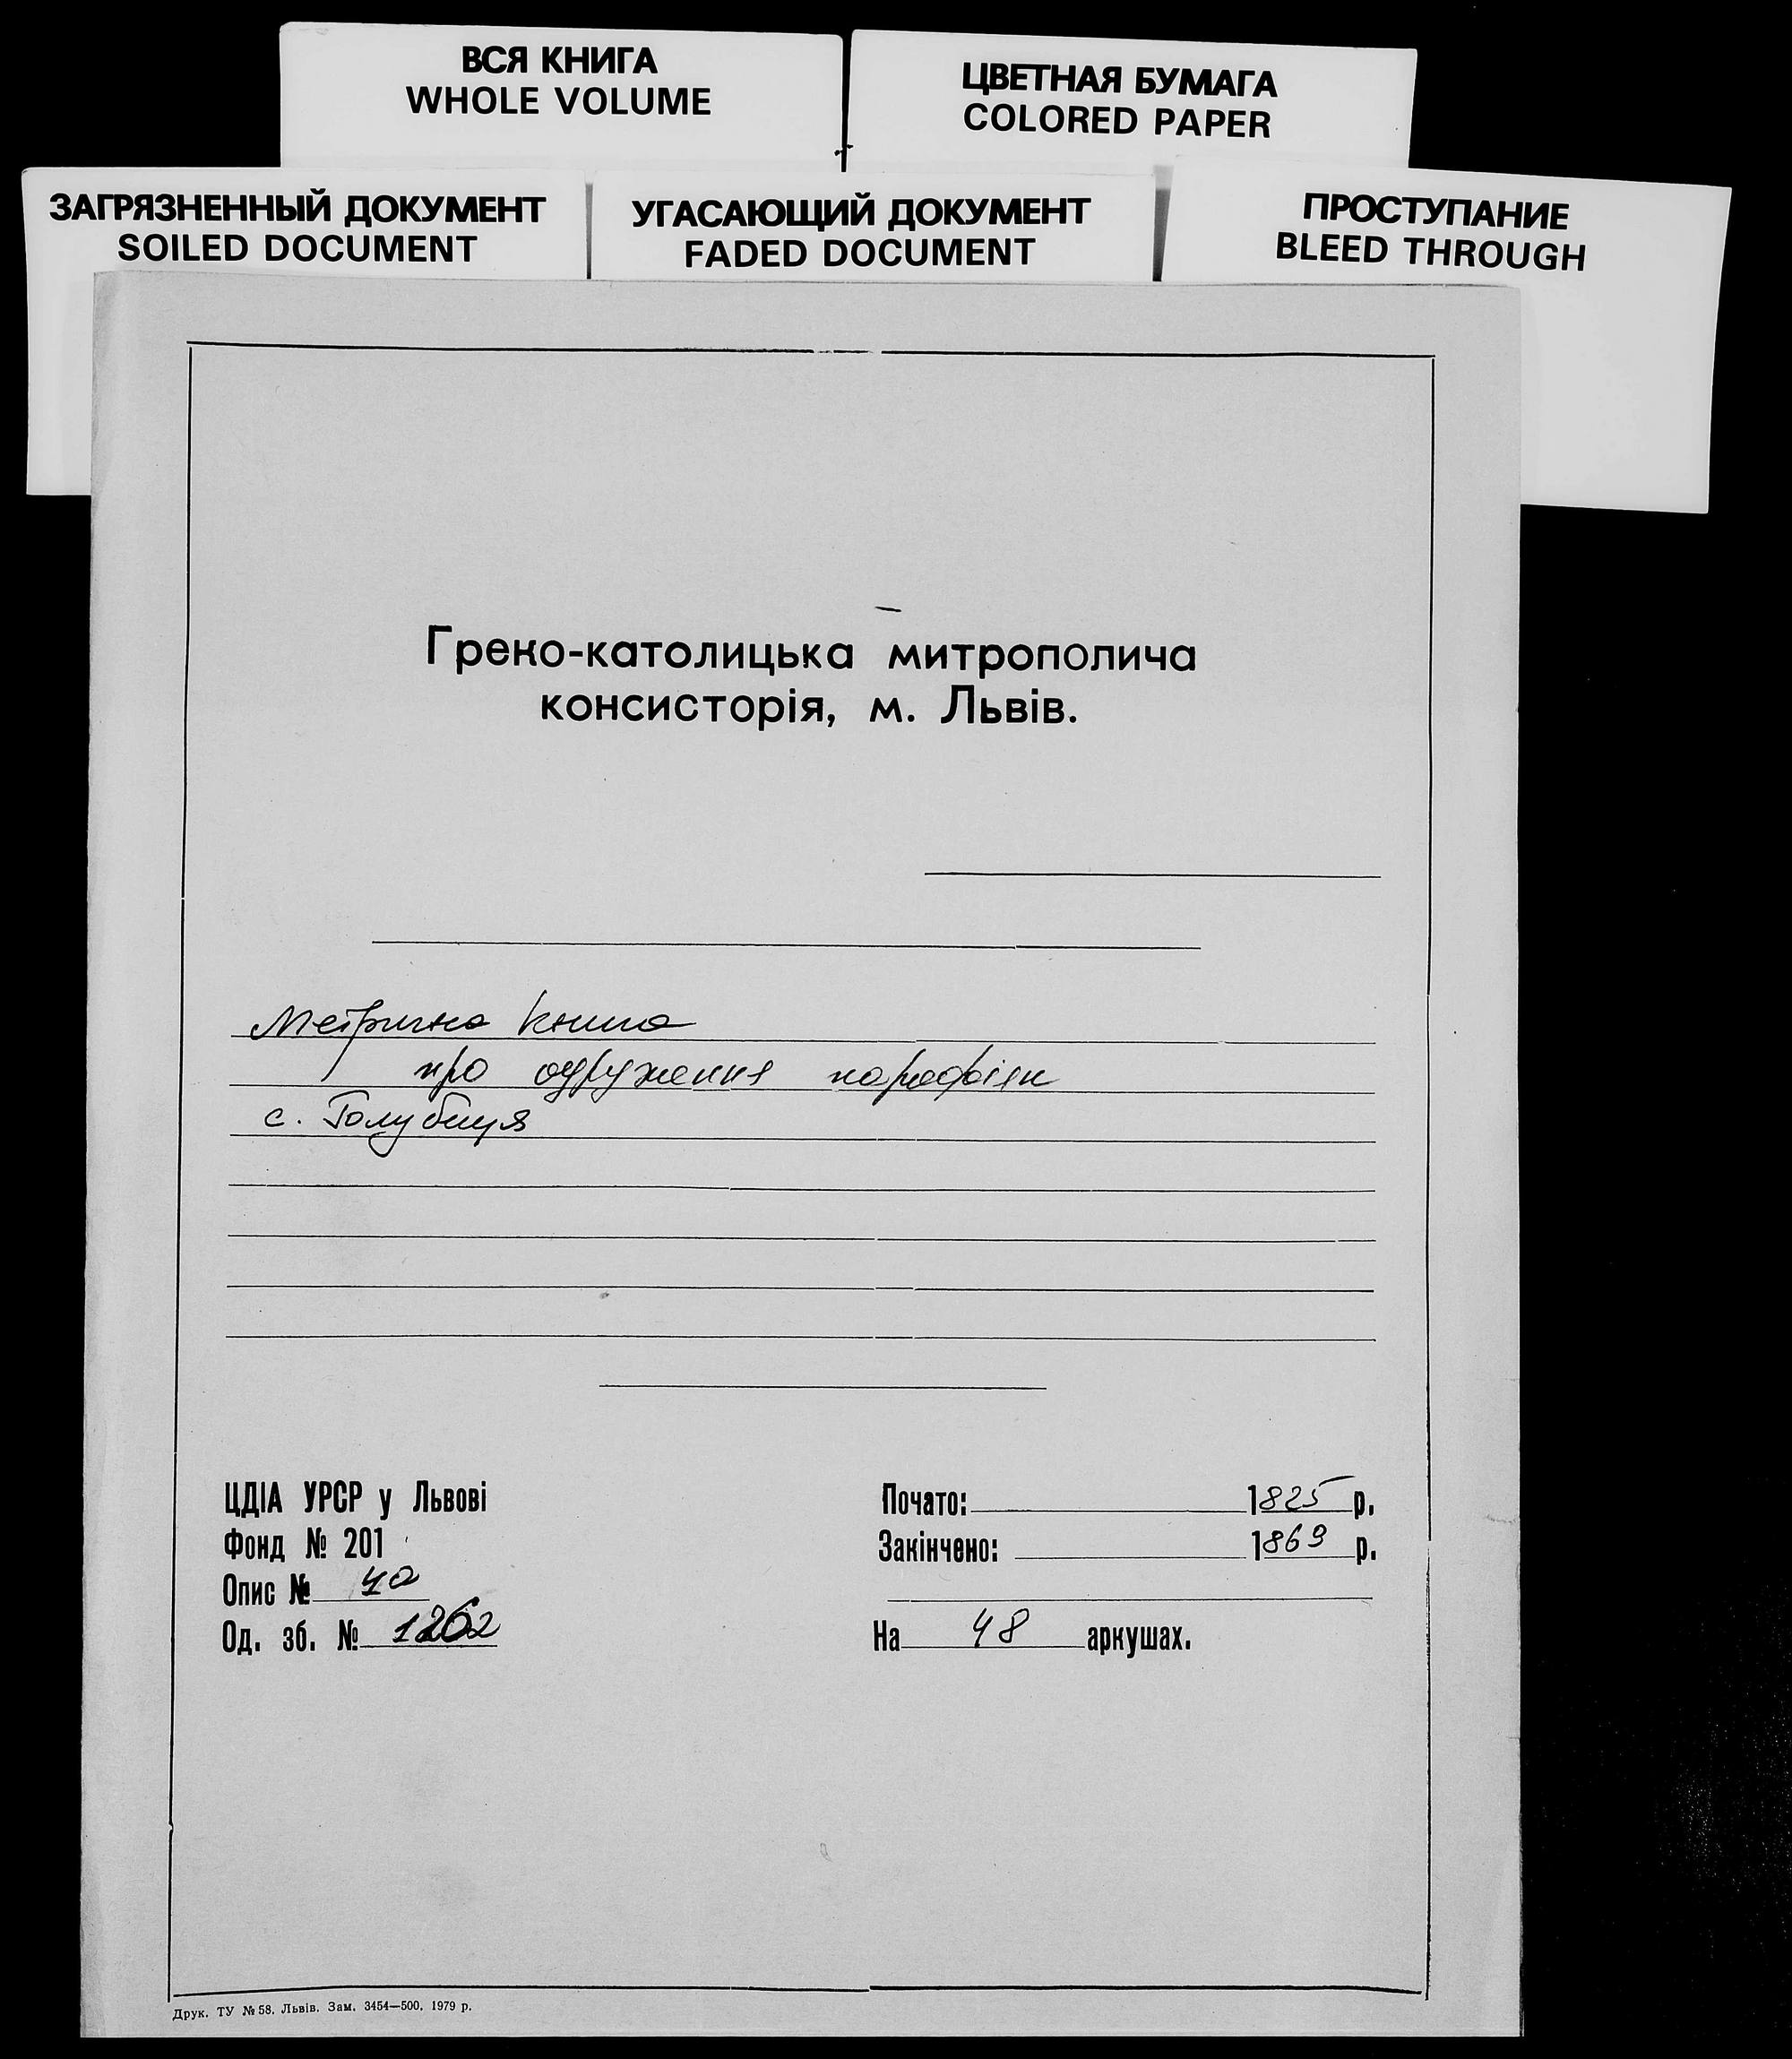 ВСЯ КНИГА
WHOLE VOLUME
ЦВЕТНАЯ БУМАГА
COLORED PAPER
ЗАГРЯЗНЕННЫЙ ДОКУМЕНТ
SOILED DOCUMENT
УГАСАЮЩИЙ ДОКУМЕНТ
FADED DOCUMENT
ПРОСТУПАНИЕ
BLEED THROUGH
Греко-католицька митрополича
консисторія, м. Львів.
Метрична книга
про одруження парафіян
с. Голубиця
ЦДІА УРСР у Львові
Фонд № 201
Опис № 4а
Од. зб. № 1262
Почато: 1825 р.
Закінчено: 1869 р.
На 48 аркушах.
Друк. ТУ № 58. Львів. Зам. 3454—500. 1979 р.